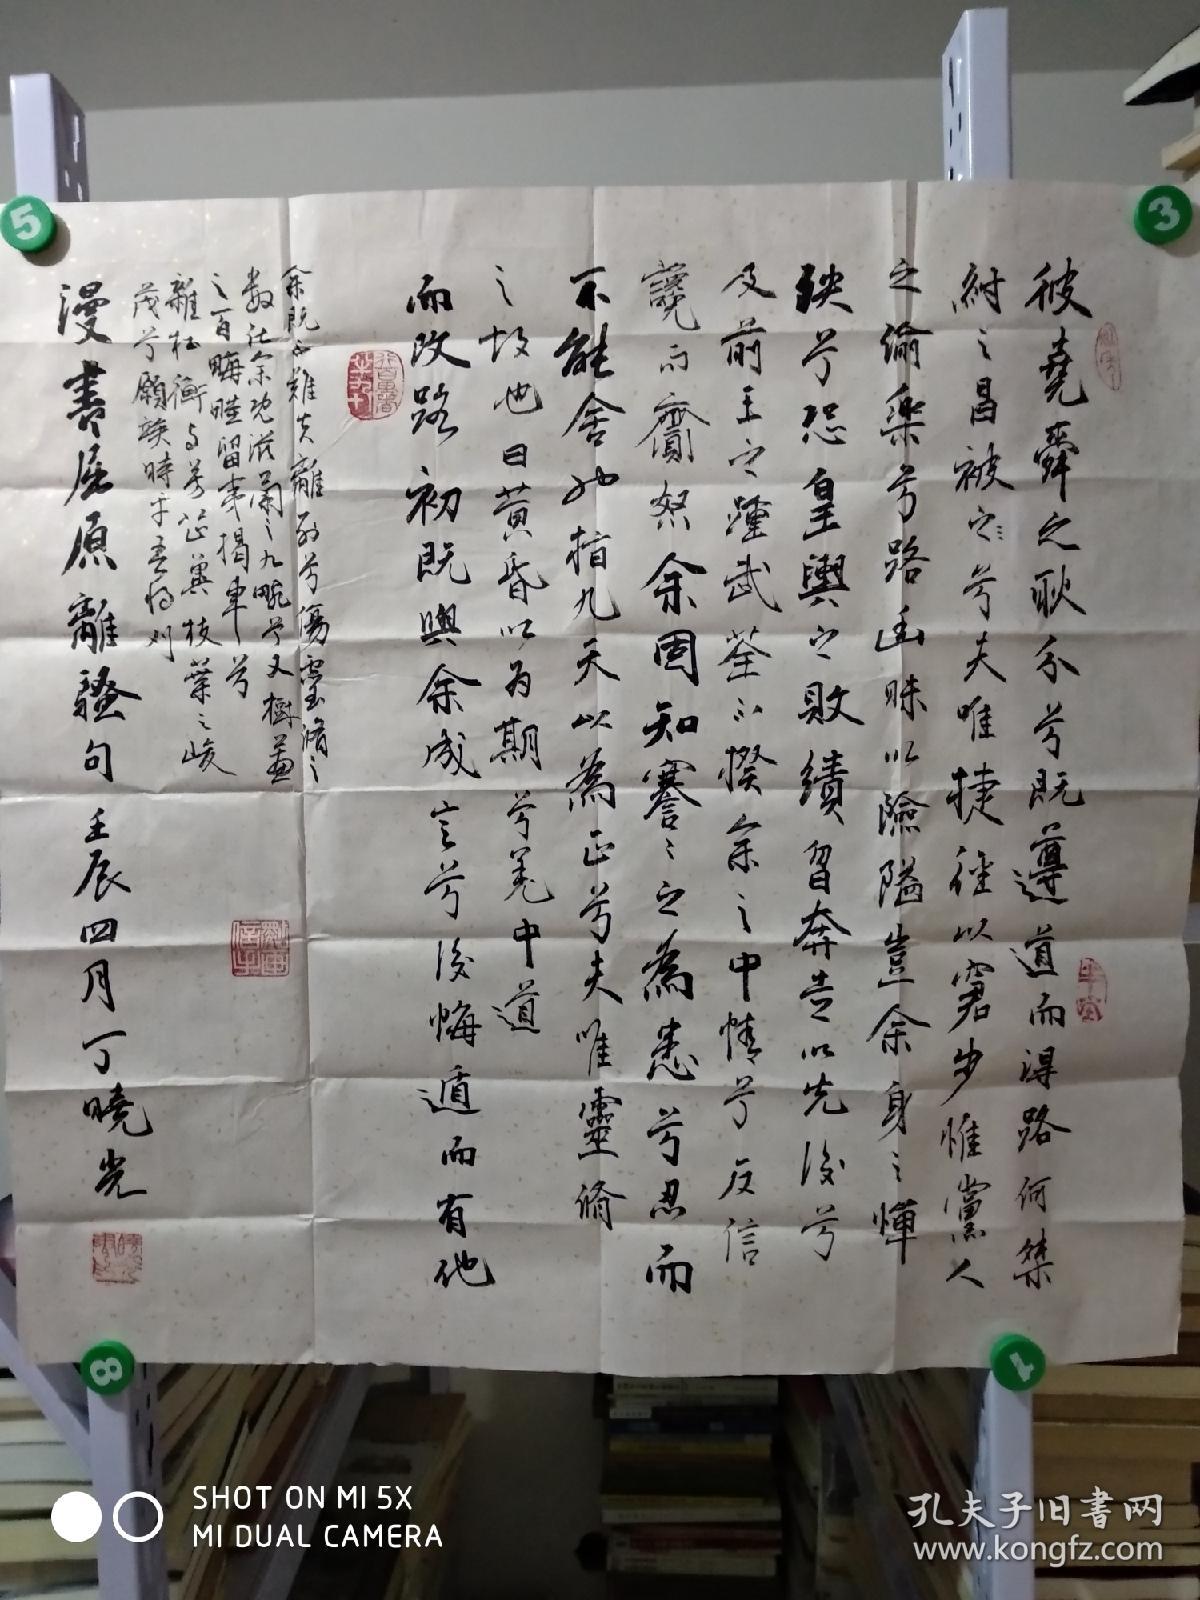 彼堯舜之耿介兮既遵道而得路何桀
紂之昌被之兮夫唯捷徑以窘步惟黨人
之偷樂兮路幽昧以險隘豈余身之憚
殃兮恐皇輿之敗績曶奔告以先後兮
及前王之踵武荃不揆余之中情兮反信
讒而齌怒余固知謇之之為患兮忍而
不能舍也指九天以為正兮夫唯靈脩
之故也曰黄昏以為期兮羌中道
而改路初既與余成言兮後悔遁而有他
余既不難夫離別兮傷靈脩之
數化余既滋蘭之九畹兮又樹蕙
之百畮畦留夷揭車兮
雜杜衡與芳芷冀枝葉之峻
茂兮願竢時乎吾將刈
漫書屈原離騷句 壬辰四月丁曉光
5
3
8
1
SHOT ON MI 5X
MI DUAL CAMERA
孔夫子旧书网
www.kongfz.com